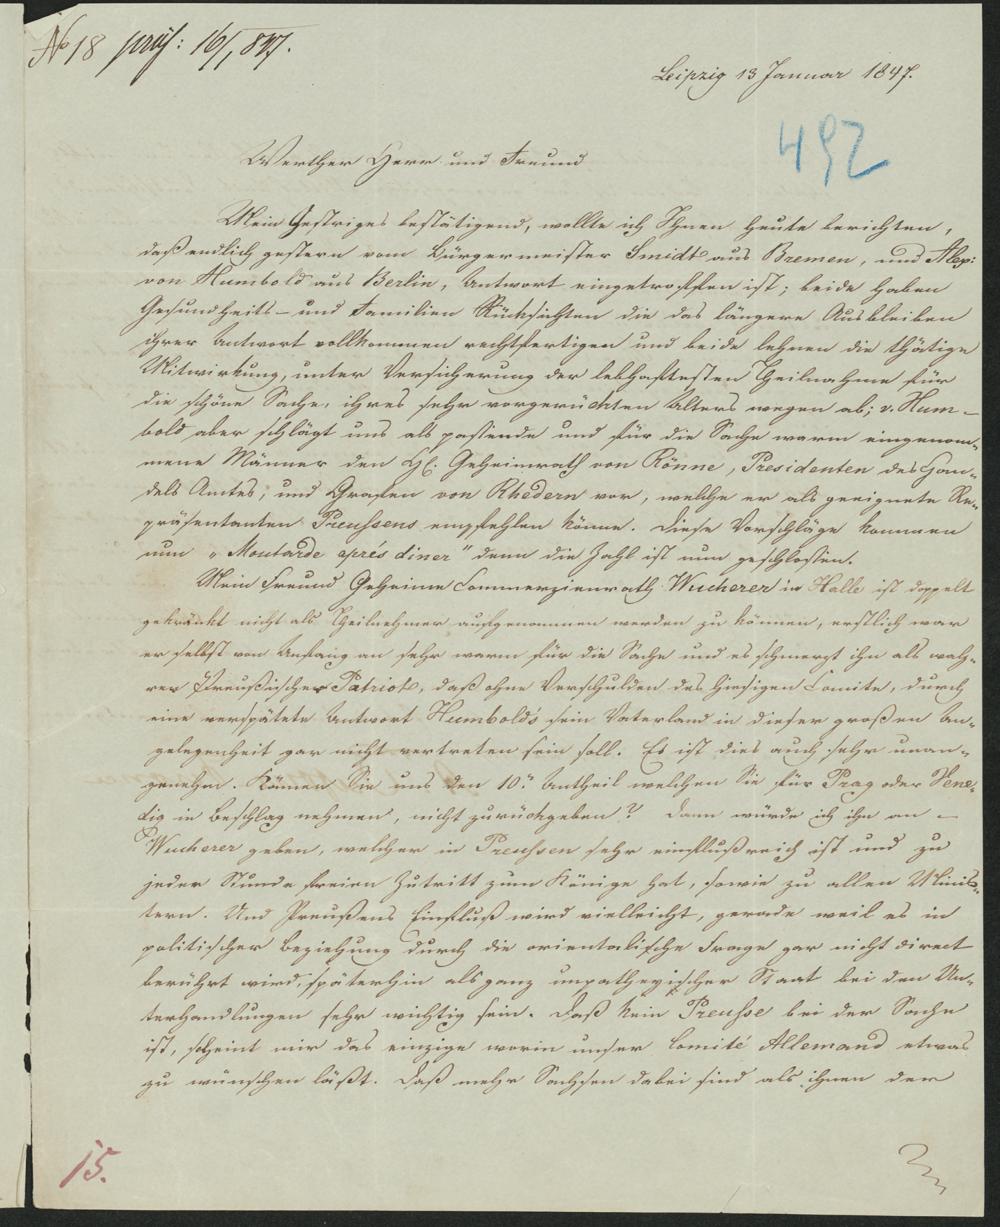 No 18 präs: 16/1 847.
Leipzig 13 Januar 1847.
492
Werther Herr und Freund
Mein Gestriges bestätigend, wollte ich Ihnen heute berichten,
daß endlich gestern vom Bürgermeister Smidt aus Bremen, und Alex:
von Humbold aus Berlin, Antwort eingetroffen ist; beide haben
Gesundheits- und Familien Rücksichten die das längere Ausbleiben
ihrer Antwort vollkommen rechtfertigen und beide lehnen die thätige
Mitwirkung, unter Versicherung der lebhaftesten Theilnahme für
die schöne Sache, ihres sehr vorgerückten Alters wegen ab; v. Hum-
bold aber schlägt uns als passende und für die Sache warm eingenom-
mene Männer den H. Geheimrath von Rönne, Presidenten des Han-
dels Amtes, und Grafen von Rhedern vor, welche er als geeignete Re-
präsentanten Preussens empfehlen könne. Diese Vorschläge kommen
nun „Moutarde après diner" denn die Zahl ist nun geschlossen.
Mein Freund Geheime Commerzienrath Wucherer in Halle ist doppelt
gekränkt nicht als Theilnehmer aufgenommen werden zu können, erstlich war
er selbst von Anfang an sehr warm für die Sache und es schmerzt ihn als wah-
rer Preußischer Patriot, daß ohne Verschulden des hiesigen Comite, durch
eine verspätete Antwort Humbold's sein Vaterland in dieser großen An-
gelegenheit gar nicht vertreten sein soll. Es ist dies auch sehr unan-
genehm. Können Sie uns den 10n Antheil welchen Sie für Prag oder Vene-
dig in Beschlag nehmen, nicht zurückgeben? Dann würde ich ihn an -
Wucherer geben, welcher in Preussen sehr einflußreich ist und zu
jeder Stunde freien Zutritt zum Könige hat, sowie zu allen Minis-
tern. Und Preußens Einfluß wird vielleicht, gerade weil es in
politischer Beziehung durch die orientalische Frage gar nicht direct
berührt wird, späterhin als ganz unpartheyischer Staat bei den Un-
terhandlungen sehr wichtig sein. Daß kein Preusse bei der Sache
ist, scheint mir das einzige worin unser Comité Allemand etwas
zu wünschen läßt. Daß mehr Sachsen dabei sind als ihnen der
15.